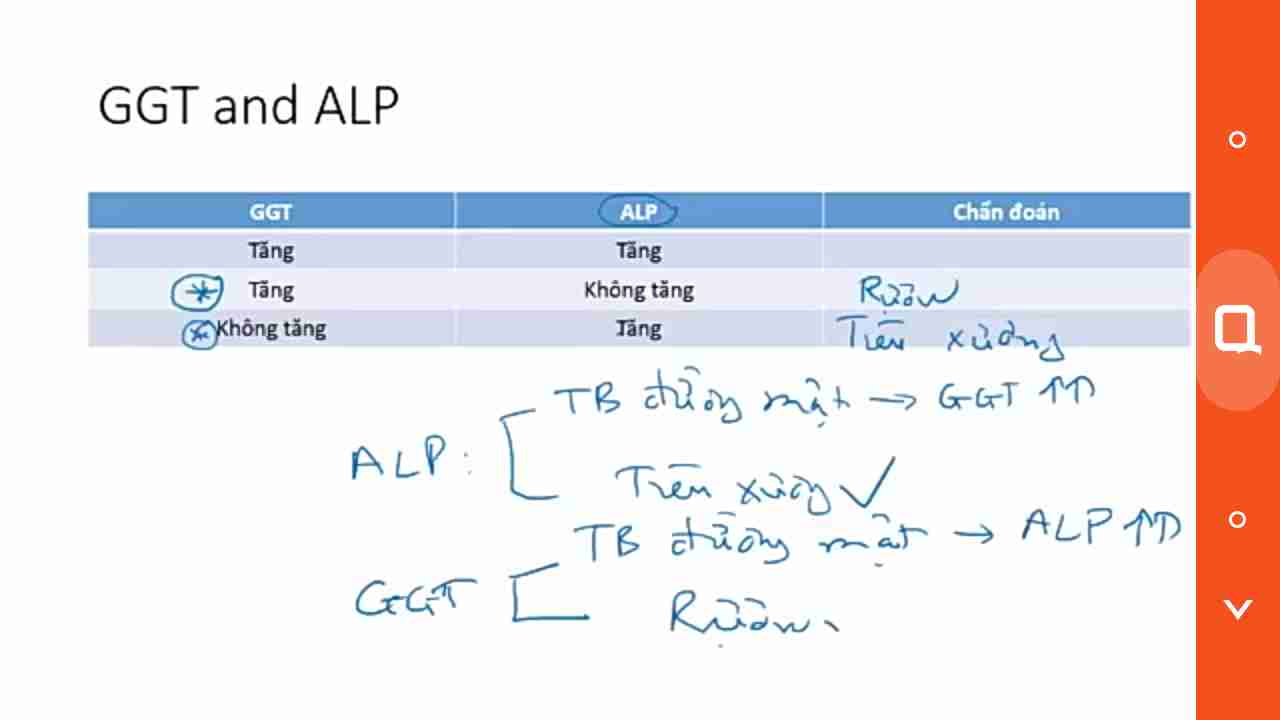 GGT and ALP
GGT ALP Chẩn đoán
Tăng Tăng
Tăng Không tăng Rượu
Không tăng Tăng Trên xương
TB đường mật → GGT ↑↑↑
ALP :
Trên xương ✓
TB đường mật → ALP ↑↑↑
GGT
Rượu